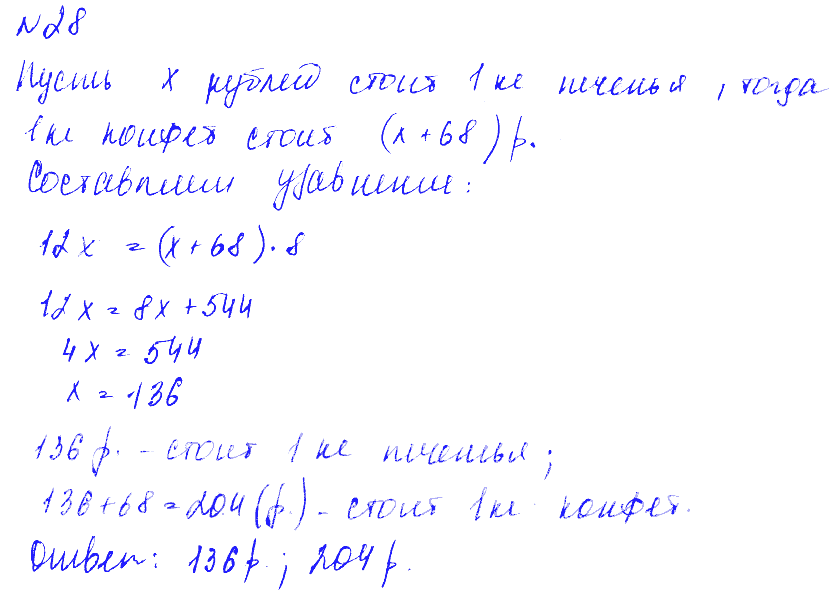 N28
Пусть x рублей стоит 1 кг печенья, тогда
1 кг конфет стоит (x+68) р.
Составим уравнение:
12x = (x+68)·8
12x = 8x+544
4x = 544
x = 136
136 р. - стоит 1 кг печенья;
136+68=204(р.) - стоит 1 кг конфет.
Ответ: 136 р.; 204 р.